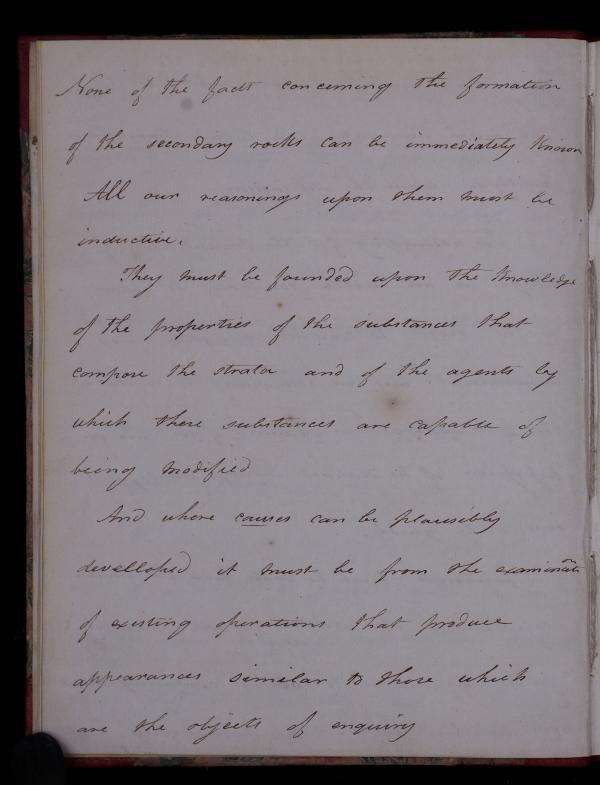 None of the facts concerning the formation
of the secondary rocks can be immediately known
All our reasonings upon them must be
inductive.
They must be founded upon the knowledge
of the properties of the substances that
compose the strata and of the agents by
which these substances are capable of
being modified
And where causes can be plausibly
develloped it must be from the examinatn
of existing operations that produce
appearances similar to those which
are the objects of enquiry